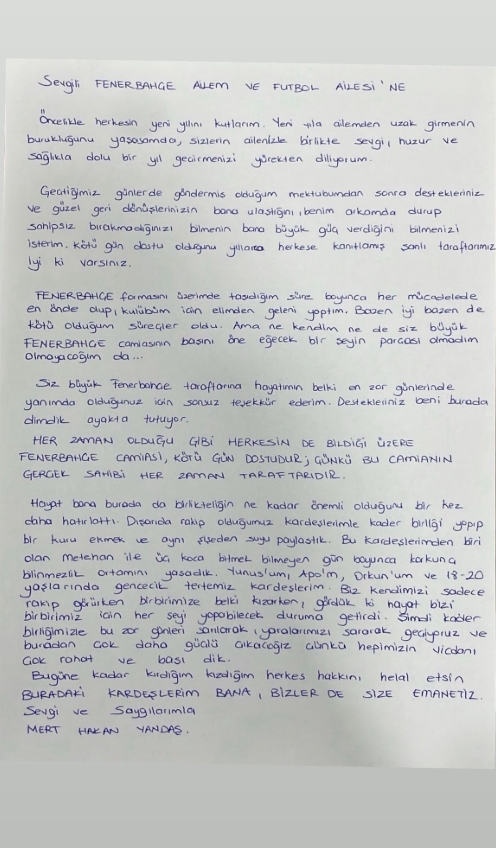 Sevgili FENERBAHÇE AİLEM VE FUTBOL AİLESİ'NE
Öncelikle herkesin yeni yılını kutlarım. Yeni yıla ailemden uzak girmenin
burukluğunu yaşasamda, sizlerin ailenizle birlikte sevgi, huzur ve
sağlıkla dolu bir yıl geçirmenizi yürekten diliyorum.
Geçtiğimiz günlerde göndermiş olduğum mektubumdan sonra destekleriniz
ve güzel geri dönüşlerinizin bana ulaştığını, benim arkamda durup
sahipsiz bırakmadığınızı bilmenin bana büyük güç verdiğini bilmenizi
isterim. Kötü gün dostu olduğunu yıllarca herkese kanıtlamış şanlı taraftarımız
İyi ki varsınız.
FENERBAHÇE formasını üzerimde taşıdığım süre boyunca her mücadelede
en önde olup, kulübüm için elimden geleni yaptım. Bazen iyi bazen de
kötü olduğum süreçler oldu. Ama ne kendim ne de siz büyük
FENERBAHÇE camiasının başını öne eğecek bir şeyin parçası olmadım
olmayacağım da...
Siz büyük Fenerbahçe taraftarına hayatımın belki en zor günlerinde
yanımda olduğunuz için sonsuz teşekkür ederim. Destekleriniz beni burada
dimdik ayakta tutuyor.
HER ZAMAN OLDUĞU GİBİ HERKESİN DE BİLDİĞİ ÜZERE
FENERBAHÇE CAMİASI, KÖTÜ GÜN DOSTUDUR; ÇÜNKÜ BU CAMİANIN
GERÇEK SAHİBİ HER ZAMAN TARAFTARIDIR.
Hayat bana burada da birlikteliğin ne kadar önemli olduğunu bir kez
daha hatırlattı. Dışarıda rakip olduğumuz kardeşlerimle kader birliği yapıp
bir kuru ekmek ve aynı şişeden suyu paylaştık. Bu kardeşlerimden biri
olan Metehan ile üç koca bitmek bilmeyen gün boyunca korkunç
bilinmezlik ortamını yaşadık. Yunus'um, Apo'm, Orkun'um ve 18-20
yaşlarında gencecik tertemiz kardeşlerim. Biz kendimizi sadece
rakip görürken birbirimize belki kızarken, gördük ki hayat bizi
birbirimiz için her şeyi yapabilecek duruma getirdi. Şimdi kader
birliğimizle bu zor günleri sarılarak, yaralarımızı sararak geçiyoruz ve
buradan çok daha güçlü çıkacağız çünkü hepimizin vicdanı
Çok rahat ve başı dik.
Bugüne kadar kırdığım kızdığım herkes hakkını helal etsin
BURADAKİ KARDEŞLERİM BANA, BİZLER DE SİZE EMANETİZ.
Sevgi ve Saygılarımla
MERT HAKAN YANDAŞ.